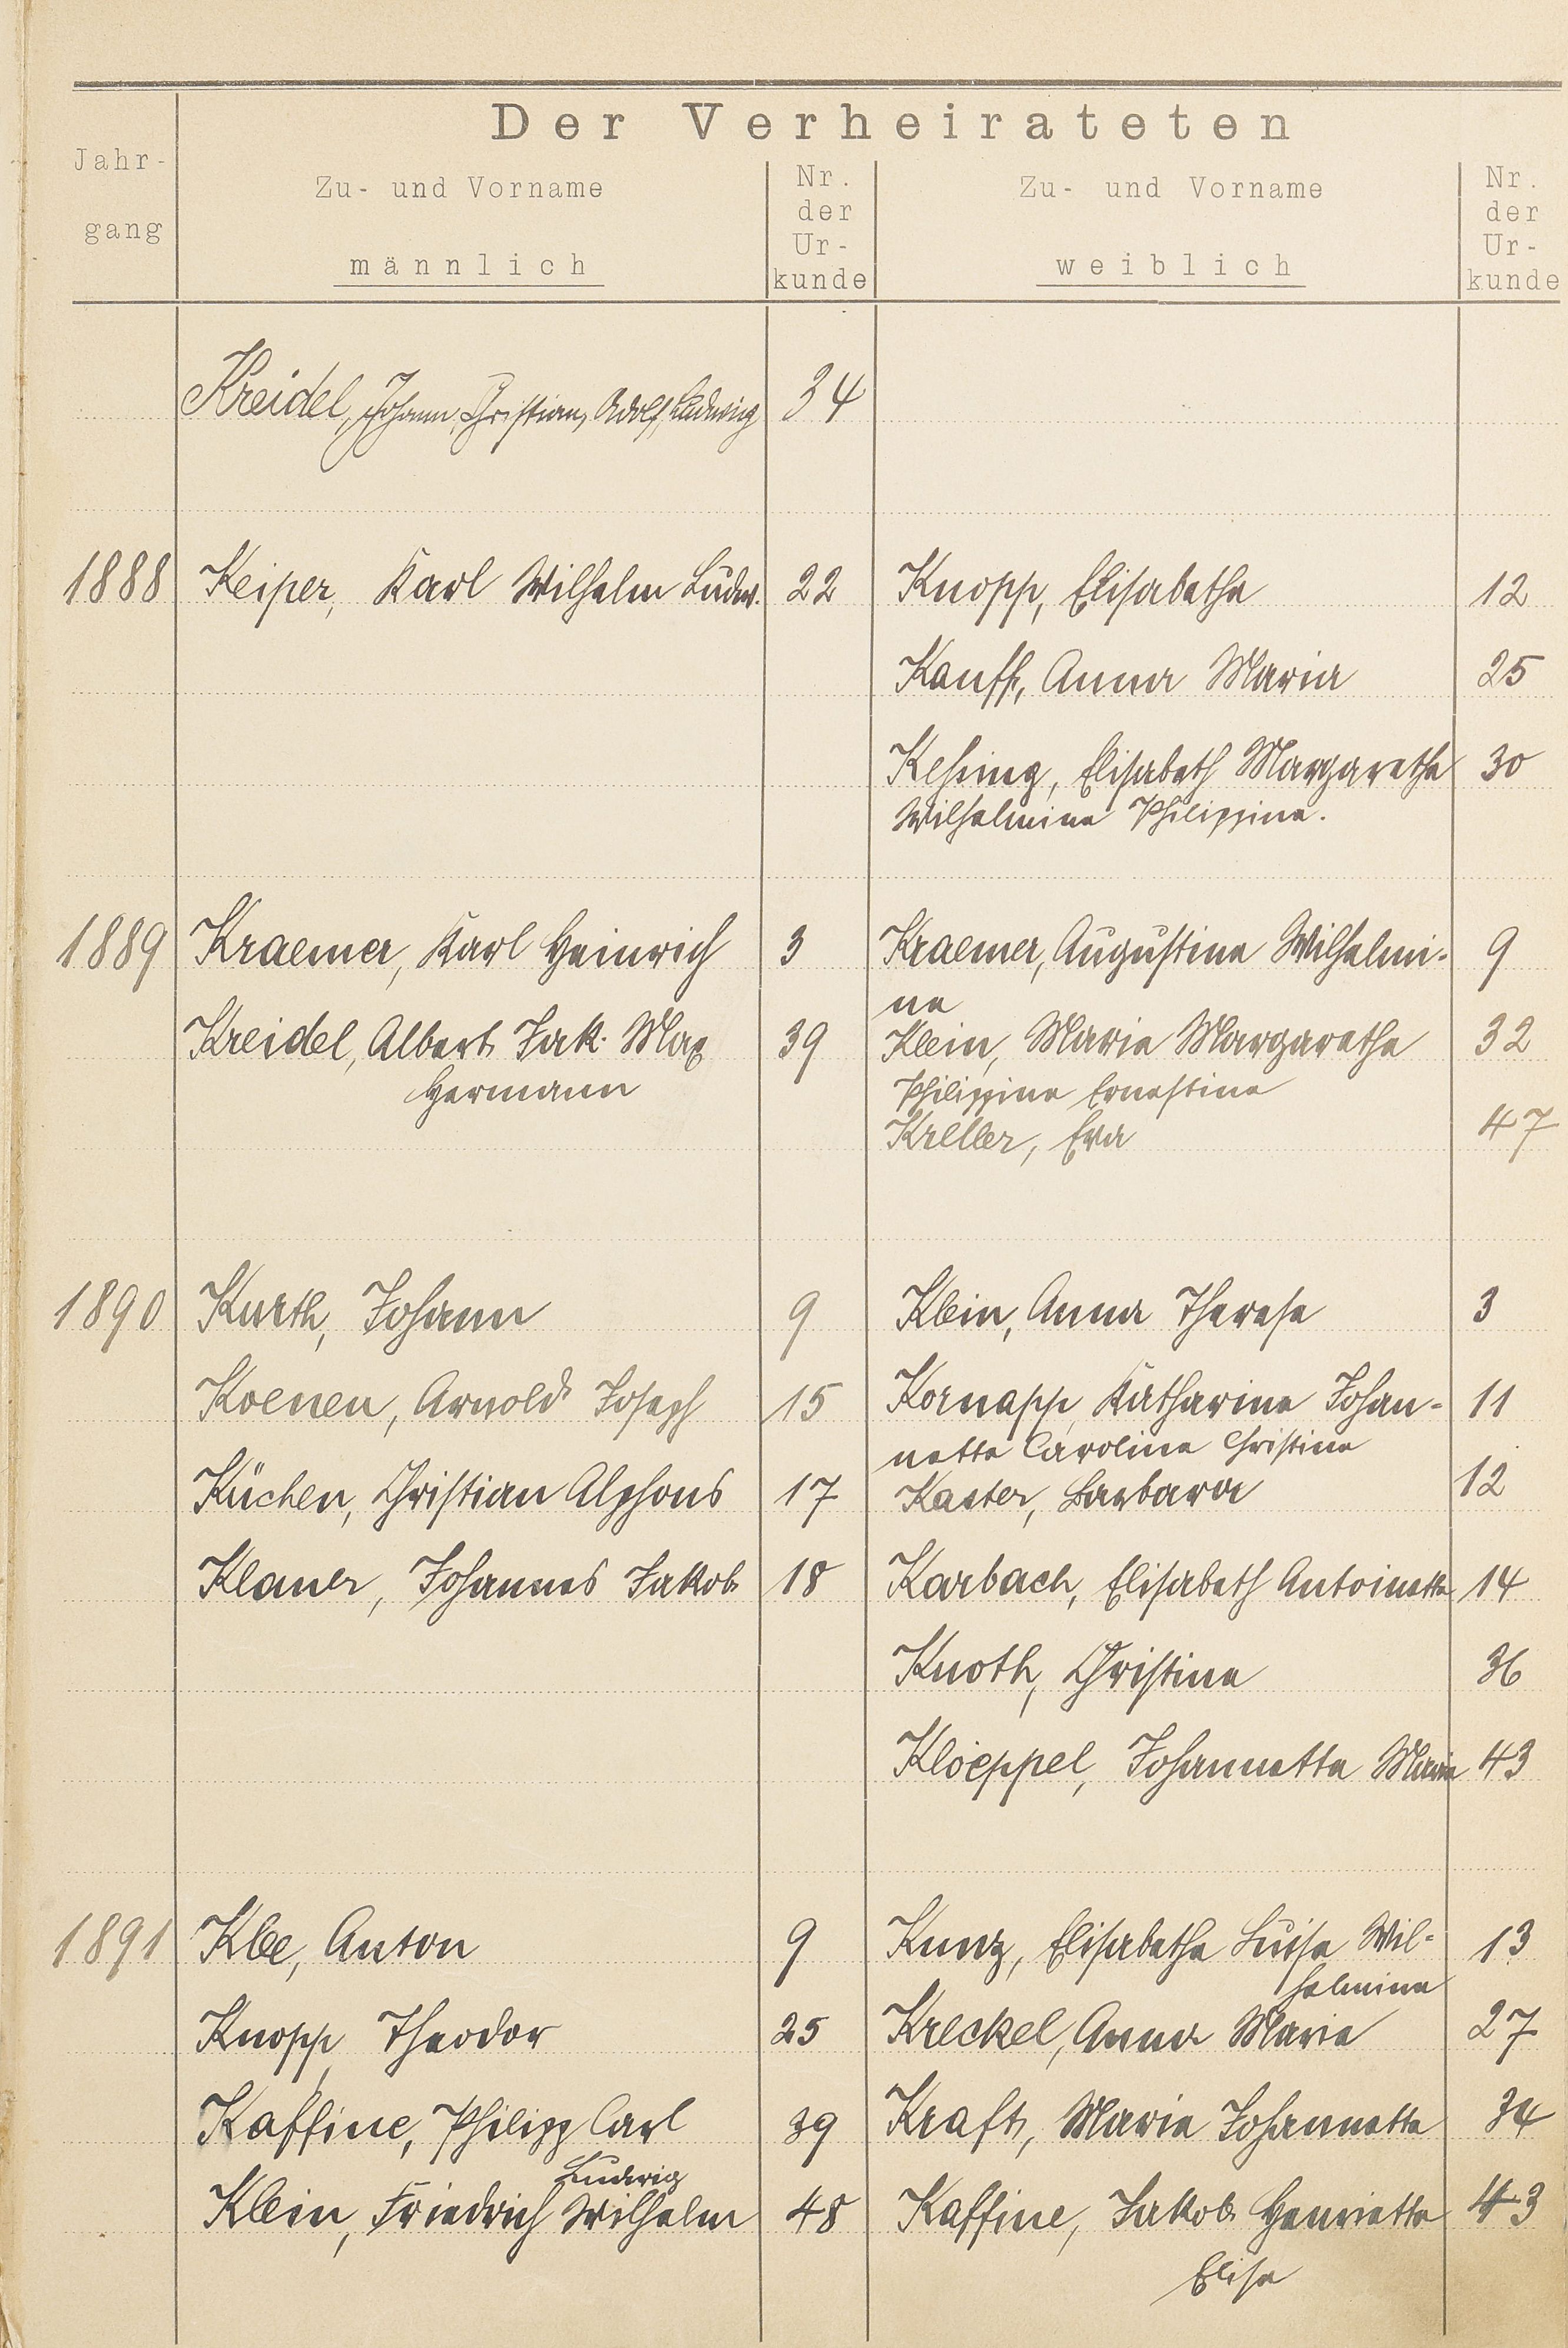 Der Verheirateten
Jahr-
gang
Zu- und Vorname
männlich
Nr.
der
Ur-
kunde
Zu- und Vorname
weiblich
Nr.
der
Ur-
kunde
Kreidel, Johann, Christian, Adolf, Ludwig 34
1888 Keiper, Karl Wilhelm Ludw. 22 Knopp, Elisabethe 12
Kauff, Anna Maria 25
Keßing, Elisabeth Margarethe 30
Wilhelmine Philippine.
1889 Kraemer, Karl Heinrich 3 Kraemer, Augustine Wilhelmi- 9
ne
Kreidel, Albert Jak. Max 39 Klein, Marie Margarethe 32
Hermann Philippine Ernestine
Kreller, Eva 47
1890 Kurth, Johann 9 Klein, Anna Therese 3
Koenen, Arnold Joseph 15 Kornapp, Katharine Johan- 11
nette Caroline Christine
Küchen, Christian Alphons 17 Kaster, Barbara 12
Klauer, Johannes Jakob 18 Karbach, Elisabeth Antoinette 14
Knoth, Christine 36
Kloeppel, Johannette Marie 43
1891 Klee, Anton 9 Kunz, Elisabethe Luise Wil- 13
helmine
Knopp, Theodor 25 Kreckel, Anna Marie 27
Kaffine, Philipp Carl 39 Kraft, Marie Johannette 34
Ludwig
Klein, Friedrich Wilhelm 48 Kaffine, Jakob. Henriette 43
Elise